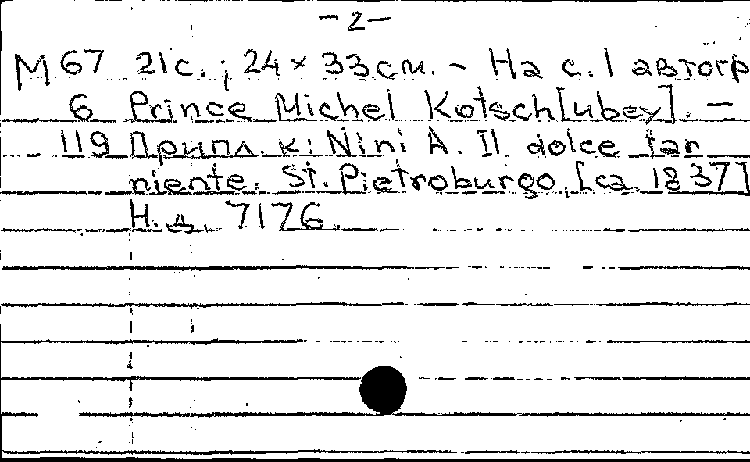 - 2 -
М 67 21с.; 24 × 33см. - На с. 1 автогр
6 Prince Michel Kotsch[ubey]. -
119 Припл. к: Nini A. Il dolce far
niente. St. Pietroburgo, [ca 1837]
Н.д. 7176.